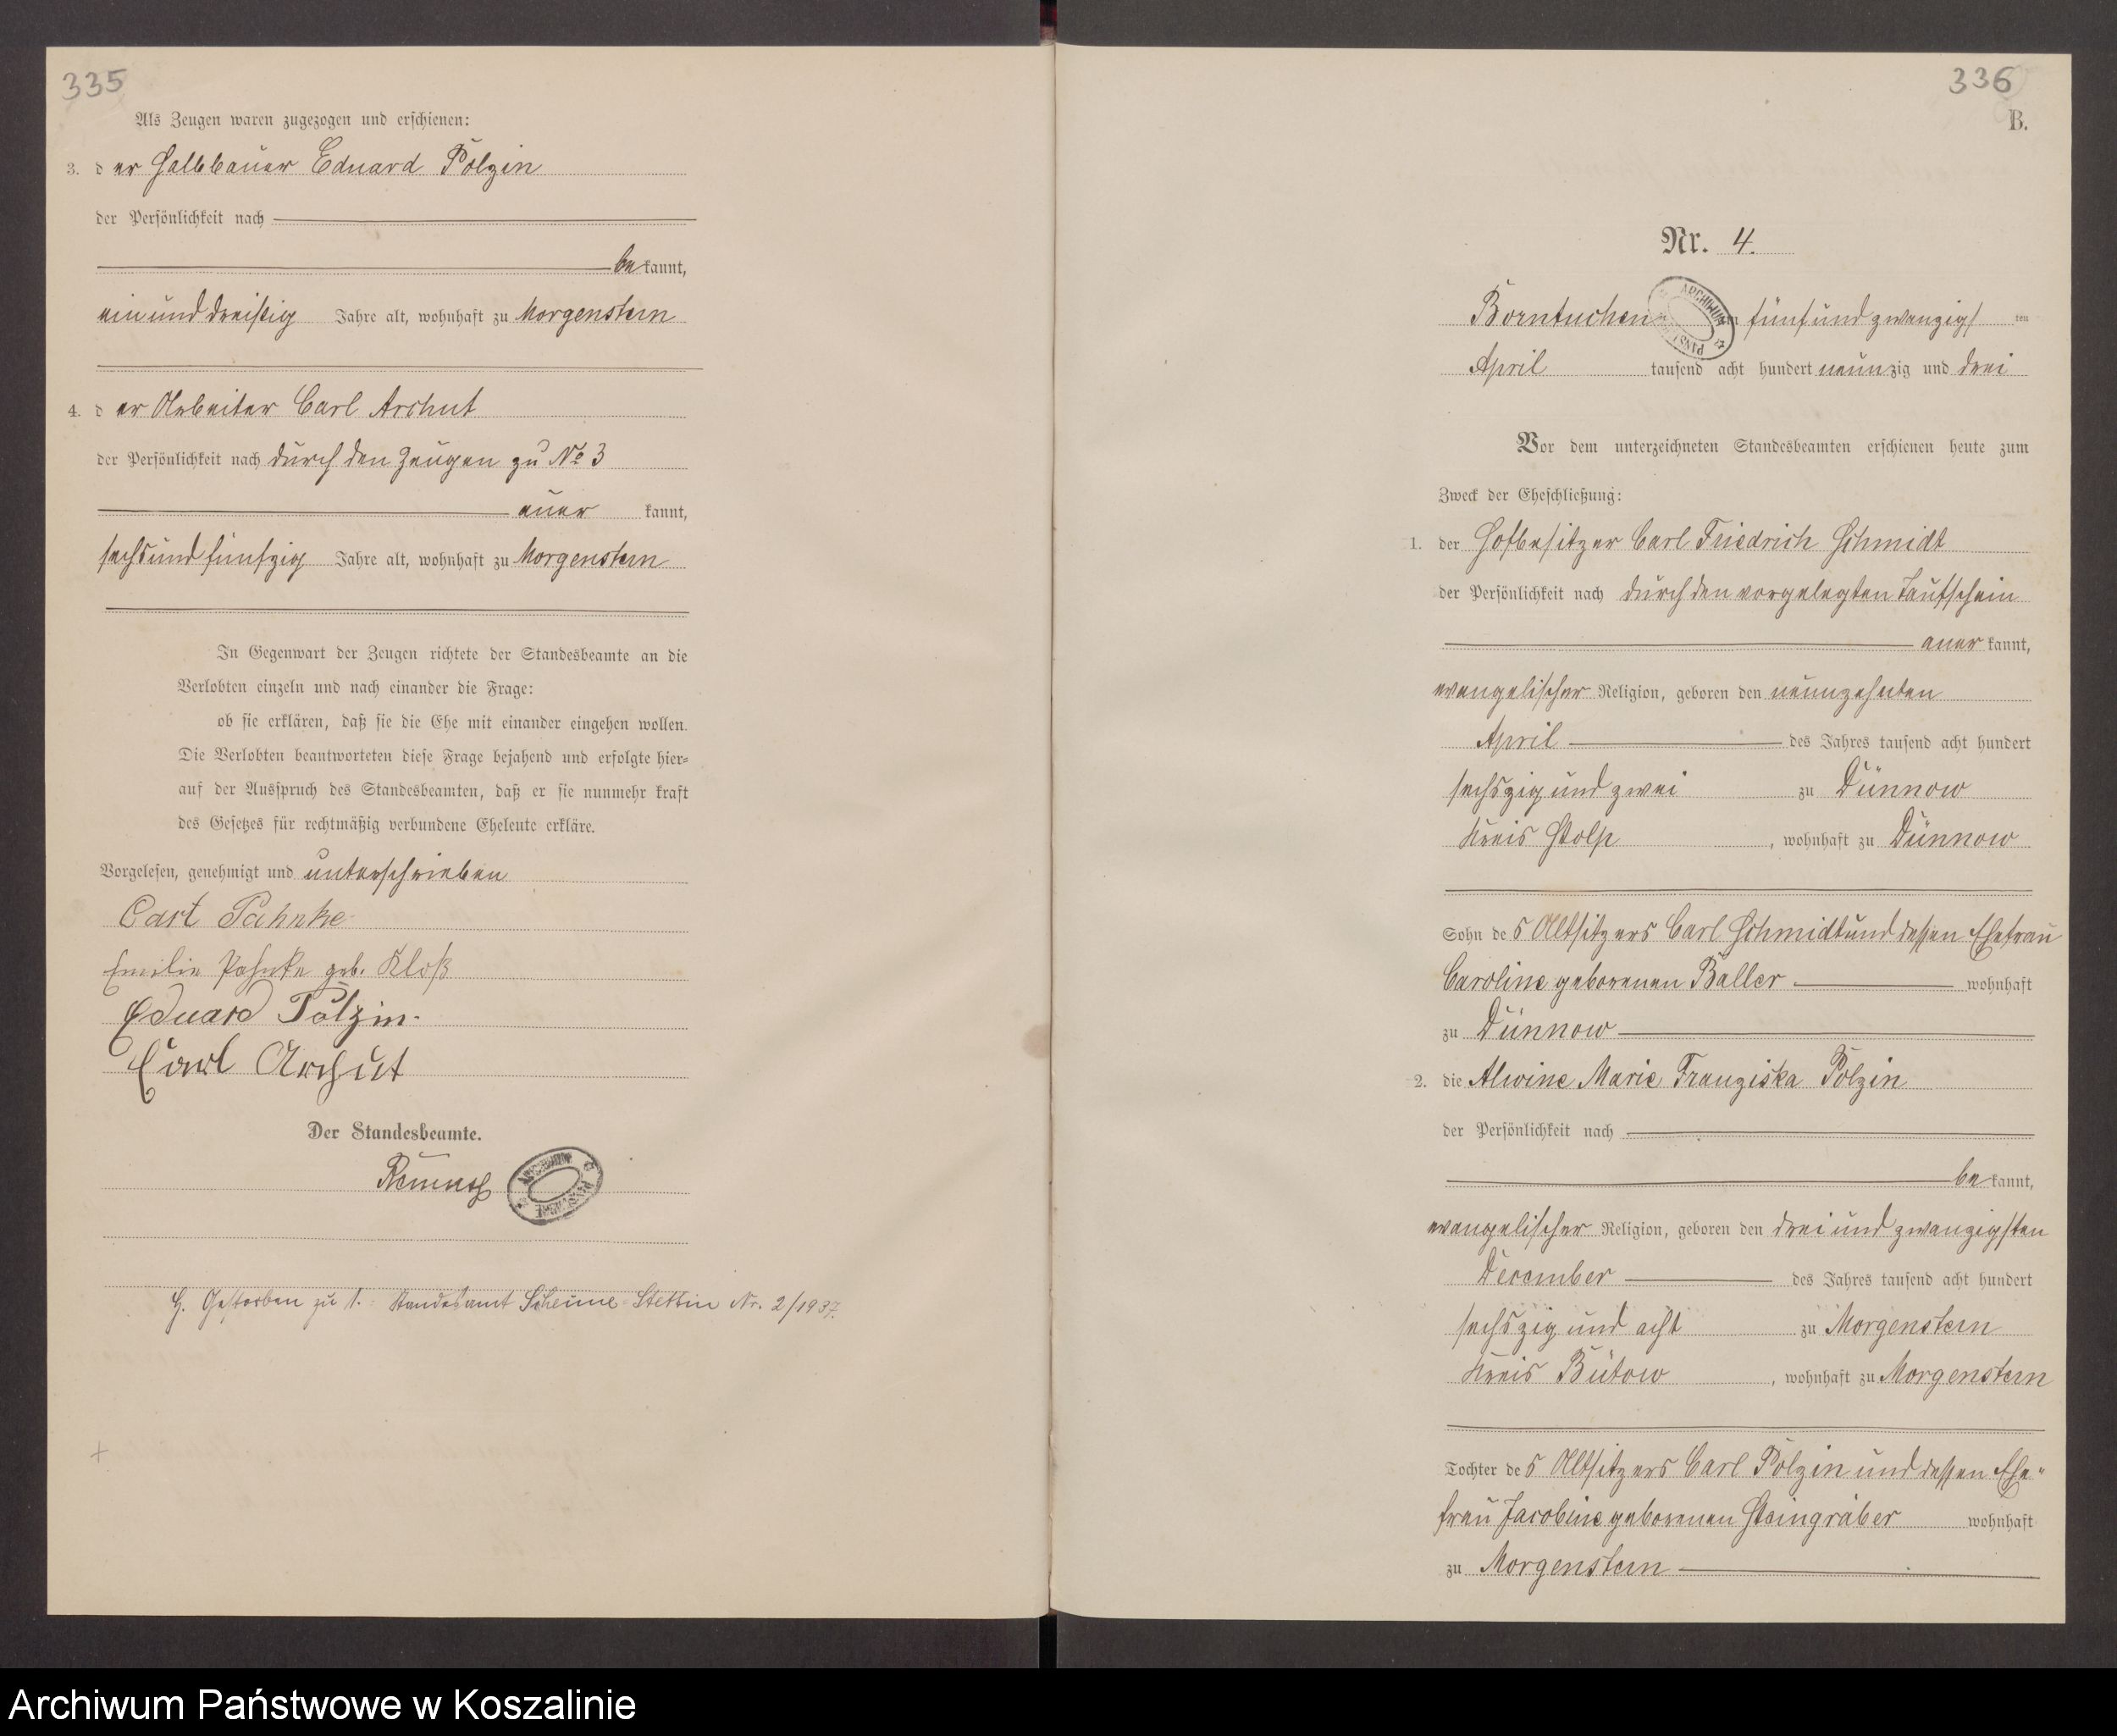 335
Als Zeugen waren zugezogen und erschienen:
3. der Halbbauer Eduard Polzin
der Persönlichkeit nach
bekannt,
ein und dreißig Jahre alt, wohnhaft zu Morgenstern
4. der Arbeiter Carl Archut
der Persönlichkeit nach durch den Zeugen zu No 3
anerkannt,
sechs und fünfzig Jahre alt, wohnhaft zu Morgenstern
In Gegenwart der Zeugen richtete der Standesbeamte an die
Verlobten einzeln und nach einander die Frage:
ob sie erklären, daß sie die Ehe mit einander eingehen wollen.
Die Verlobten beantworteten diese Frage bejahend und erfolgte hier-
auf der Ausspruch des Standesbeamten, daß er sie nunmehr kraft
des Gesetzes für rechtmäßig verbundene Eheleute erkläre.
Vorgelesen, genehmigt und unterschrieben
Carl Pahnke
Emilie Pahnke geb. Kloß
Eduard Polzin.
Carl Archut
Der Standesbeamte.
ARCHIWUM
H. Gestorben zu 1. Standesamt Scheune-Stettin Nr. 2/1937.
336
B.
Nr. 4.
Borntuchen am fünf und zwanzigsten
ARCHIWUM PAŃST
April tausend acht hundert neunzig und drei
Vor dem unterzeichneten Standesbeamten erschienen heute zum
Zweck der Eheschließung:
1. der Hofbesitzer Carl Friedrich Schmidt
der Persönlichkeit nach durch den vorgelegten Taufschein
anerkannt,
evangelischer Religion, geboren den neunzehnten
April des Jahres tausend acht hundert
sechszig und zwei zu Dünnow
Kreis Stolp, wohnhaft zu Dünnow
Sohn des Altsitzers Carl Schmidt und dessen Ehefrau
Caroline geborenen Baller wohnhaft
zu Dünnow
2. die Alwine Marie Franziska Polzin
der Persönlichkeit nach
bekannt,
evangelischer Religion, geboren den drei und zwanzigsten
December des Jahres tausend acht hundert
sechszig und acht zu Morgenstern
Kreis Bütow, wohnhaft zu Morgenstern
Tochter des Altsitzers Carl Polzin und dessen Ehe-
frau Jacobine geborenen Steingräber wohnhaft
zu Morgenstern
Archiwum Państwowe w Koszalinie